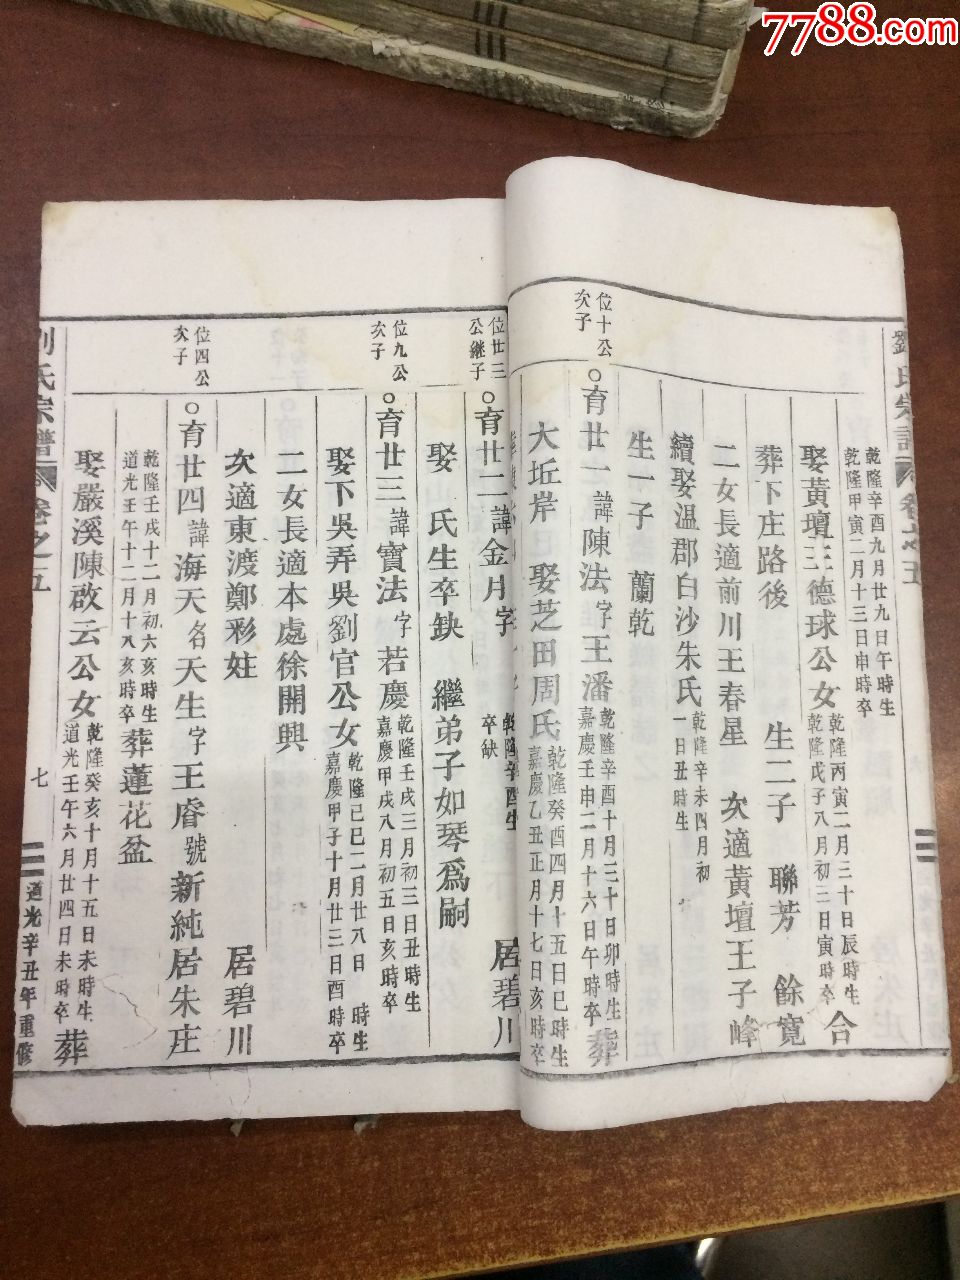 7788.com
劉氏宗譜
卷之五
乾隆辛酉九月廿九日午時生
乾隆甲寅二月十三日申時卒
娶黃壇王德球公女
乾隆丙寅二月三十日辰時生
乾隆戊子八月初三日寅時卒
合
葬下庄路後 生二子 聯芳 餘寬
二女長適前川王春星 次適黃壇王子峰
續娶溫郡白沙朱氏
乾隆辛未四月初
一日丑時生
生一子 蘭乾
位十公
次子
○育廿一諱陳法字王潘
乾隆辛酉十月三十日卯時生
嘉慶壬申二月十六日午時卒
葬
大坵岸 娶芝田周氏
乾隆癸酉四月十五日巳時生
嘉慶乙丑正月十七日亥時卒
位廿三
公継子
○育廿二諱金月字
乾隆辛酉生
卒缺
居碧川
娶 氏生卒缺 繼弟子如琴為嗣
位九公
次子
○育廿三諱寶法字若慶
乾隆壬戌三月初三日丑時生
嘉慶甲戌八月初五日亥時卒
娶下吳弄吳劉官公女
乾隆己巳二月廿八日 時生
嘉慶甲子十月廿三日酉時卒
二女長適本處徐開興
次適東渡鄭彩妵 居碧川
位四公
次子
○育廿四諱海天名天生字王睿號新純居朱庄
乾隆壬戌十二月初六亥時生
道光壬午十二月十八亥時卒
葬蓮花盆
娶嚴溪陳啟云公女
乾隆癸亥十月十五日未時生
道光壬午六月廿四日未時卒
葬
劉氏宗譜
卷之五
七
道光辛丑年重修